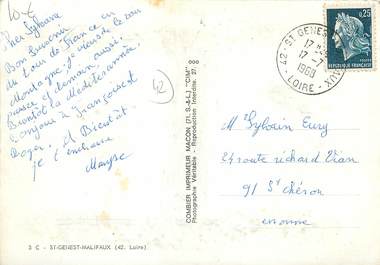 10 €
Cher Sylvain
Bon Souvenir
du tour de France en
Montagne, je viens de le voir
passer et demain aussi.
Bientot la Méditerranée.
Bonjour à Françoise et
Roger. A Bientot.
Je t'embrasse
42
42 - ST GENEST-MALIFAUX
17 H
17 - 7
1968
- LOIRE -
0,25
REPUBLIQUE FRANÇAISE
POSTES
COMBIER IMPRIMEUR MACON (71, S-&-L) "CIM"
Photographie Véritable - Reproduction Interdite.
Mr Sylvain Eury
24 route richard Vian
91 St chéron
essonne
3 C - ST-GENEST-MALIFAUX (42. Loire)